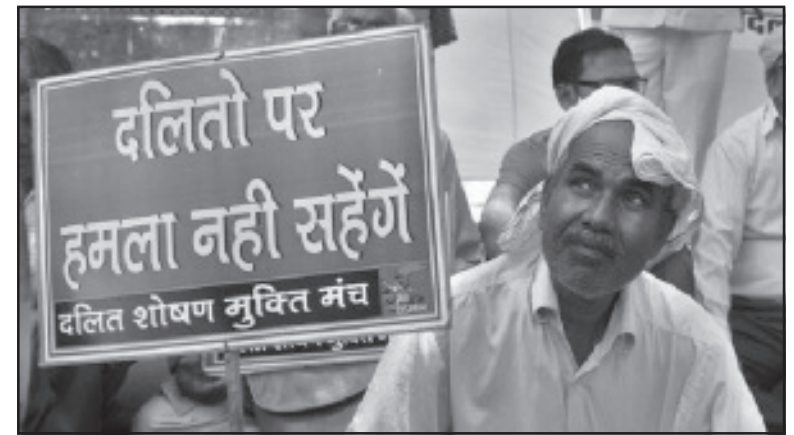 दलितो पर
हमला नही सहेंगें
दलित शोषण मुक्ति मंच